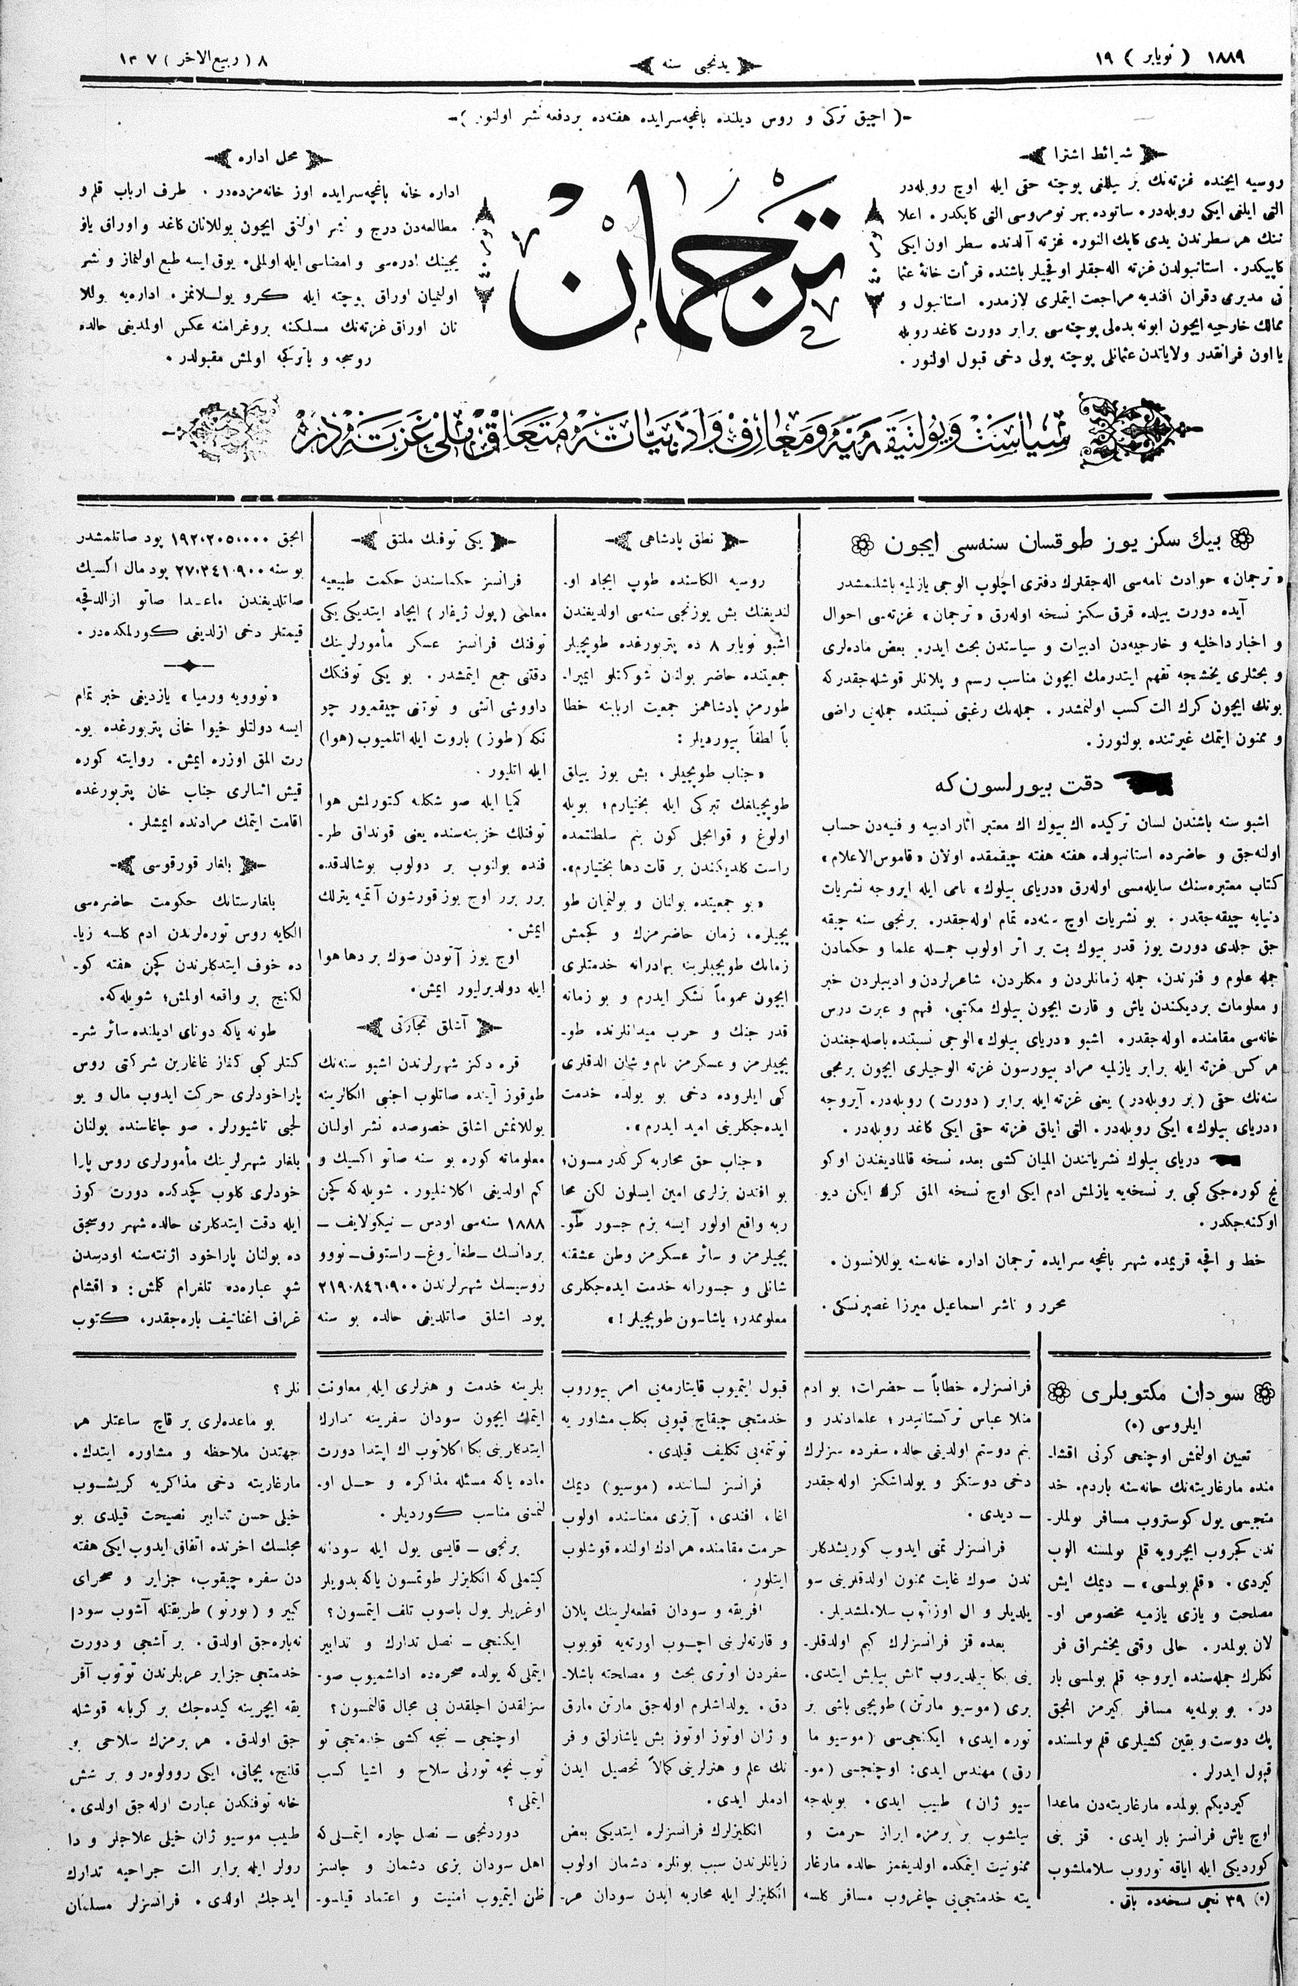 ١٨٨٩ ( نويابر ) ١٩
يدنجى سنه
٨ ( ربيع الاخر ) ١٣٠٧
-( اچيق تركى و روس ديلنده باغچه‌سرايده هفته‌ده بردفعه نشر اولنور )-
شرائط اشترا
روسيه ايچنده غزته‌نك بر ييللغى پوچته حقى ايله اوچ روبله‌در
التى ايلغى ايكى روبله‌در. ساتوده بهر نومروسى التى كاپكدر. اعلا
ننك هر سطرندن يدى كاپك النوره غزته آلدنده سطر اون ايكى
كاپيكدر. استانبولدن غزته اله‌جقلر اوقچيلر باشنده قرأت خانۀ عثما
نى مديرى دقران افنديه مراجعت ايتملرى لازمدر. استانبول و
ممالك خارجيه ايچون ابونه بده‌لى پوچته‌سى برابر دورت كاغد روبله
يا اون فرانقدر ولاياتدن عثمانلى پوچته پولى دخى قبول اولنور.
ترجمان
محل اداره
اداره خانه باغچه‌سرايده اوز خانه‌مزده‌در. طرف ارباب قلم و
مطالعه‌دن درج و نشر اولنق ايچون يوللانان كاغد و اوراق ياز
يجينك ادره‌سى و امضاسى ايله اولملى. يوق ايسه طبع اولنماز و نشر
اولنميان اوراق پوچته ايله كرو يوللانمز. اداره‌يه يوللا
نان اوراق غزته‌نك مسلكنه پروغرامنه عكس اولمديغى حالده
روسجه و ياتركجه اولمش مقبولدر.
سياست و پولتيقه‌يه و معارف و ادبياته متعلق ملى غزته‌در
بيك سكز يوز طوقسان سنه‌سى ايچون
«ترجمان» حوادث نامه‌سى اله‌جقلرك دفترى اچلوب الوجى يازلميه باشلنمشدر
آيده دورت ييلده قرق سكز نسخه اوله‌رق «ترجمان» غزته‌سى احوال
و اخبار داخليه و خارجيه‌دن ادبيات و سياستدن بحث ايدر. بعض ماده‌لرى
و بحثلرى يخشيجه تفهم ايتدرمك ايچون مناسب رسم و پلانلر قوشله‌جقدر كه
بونك ايچون كرك الت كسب اولنمشدر. جمله‌نك رغبتى نسبتنده جمله‌يى راضى
و ممنون ايتمك غيرتنده بولنورز.
دقت بيورلسون كه
اشبو سنه باشندن لسان تركيده اك بيوك اك معتبر اثار ادبيه و فنيه‌دن حساب
اولنه‌جق و حاضرده استانبولده هفته هفته چيقمقده اولان «قاموس الاعلام»
كتاب معتبره‌سنك سايله‌مسى اوله‌رق «درياى بيلوك» نامى ايله ايروجه نشريات
دنيايه چيقه‌جقدر. بو نشريات اوچ سنه‌ده تمام اوله‌جقدر. برنجى سنه چيقه
جق جلدى دورت يوز قدر بيوك بت بر اثر اولوب جمله علما و حكمادن
جمله علوم و فنندن، جمله زمانلردن و مكللردن، شاعرلردن و اديبلردن خبر
و معلومات برديكندن ياش و قارت ايچون بيلوك مكتبى، فهم و عبرت درس
خانه‌سى مقامنده اوله‌جقدر. اشبو «درياى بيلوك» الوجى نسبتنده باصله‌جغندن
هر كس غزته ايله برابر يازلميه مراد بيورسون غزته الوجيلرى ايچون برمجى
سنه‌نك حقى (بر روبله‌در) يعنى غزته ايله برابر (دورت) روبله‌در. آيروجه
«درياى بيلوك» ايكى روبله‌در. التى ايلق غزته حقى ايكى كاغد روبله‌در.
درياى بيلوك نشرياتندن الميان كشى بعده نسخه قالماديغندن اوكو
نچ كوره‌جكى كبى بر نسخه‌يه يازلمش ادم ايكى اوچ نسخه المق كرك ايكن ديو
اوكنه‌جكدر.
خط و اقچه قريمده شهر باغچه سرايده ترجمان اداره خانه‌سنه يوللانسون.
محرر و ناشر اسماعيل ميرزا غصپرنسكى.
نطق پادشاهى
روسيه الكاسنده طوپ ايجاد او-
لنديغنك بش يوزنجى سنه‌سى اولديغندن
اشبو نويابر ٨ ده پتربورغده طوپجيلر
جمعيتنده حاضر بولنان شوكتلو ايمپرا-
طورمز پادشاهمز جمعيت اربابنه خطا
باً لطفاً بيورديلر:
«جناب طوپجيلر، بش يوز ييللق
طوپجيلغك تبركى ايله بختيارم؛ بويله
اولوغ و قوانجلى كون بنم سلطنتمده
راست كلديكندن بر قات دها بختيارم».
«بو جمعيتده بولنان و بولنميان طو
پجيلره، زمان حاضرمزك و كچمش
زمانك طوپجيلرينه بهادرانه خدمتلرى
ايچون عموماً تشكر ايدرم و بو زمانه
قدر جنك و حرب ميدانلرنده طو-
پجيلرمز و عسكرمز نام و شان الدقلرى
كبى ايلروده دخى بو يولده خدمت
ايده‌جكلرينى اميد ايدرم».
«جناب حق محاربه كركدرمسون؛
بو افندن بزلرى امين ايسلون لكن محا
ربه واقع اولور ايسه بزم جسور طو-
پجيلرمز و سائر عسكرمز وطن عشقنه
شانلى و جسورانه خدمت ايده‌جكلرى
معلوممدر؛ ياشاسون طوپجيلر!»
يكى توفنك ملتق
فرانسز حكماسندن حكمت طبيعيه
معلمى (پول ژيفار) ايجاد ايتديكى يكى
توفنك فرانسز عسكر مأمورلرينك
دقتى جمع ايتمشدر. بو يكى توفنكك
داووشى انشى و توتنى چيقميور چو
نكه (طوز) باروت ايله اتلميوب (هوا)
ايله اتليور.
كميا ايله صو شكلنه كتورلمش هوا
توفنلك خزينه‌سنده يعنى قونداق طر-
فنده بولنوب بر دولوب بوشالدقده
برر برر اوچ يوز قورشون آتميه يترلك
ايمش.
اوچ يوز آتودن صوك بر دها هوا
ايله دولديرليور ايمش.
آشلق تجارتى
قره دكز شهرلرندن اشبو سنه‌نك
طوقوز آينده صاتلوب اجنبى الكالرينه
يوللانمش اشلق خصوصده نشر اولنان
معلوماته كوره بو سنه صاتو اكسيك و
كم اولديغى اكلانليور. شويله كه كچن
١٨٨٨ سنه‌سى اودس – نيكولايف –
برداسك – طغانروغ – راستوف – نووو
روسيسك شهرلرندن ٢١٩٠٨٤٦٠٩٠٠
پود اشلق صاتلديغى حالده بو سنه
انجق ١٩٢٠٢٠٥٠٠٠٠ پود صاتلمشدر
بو سنه ٢٧٠٣٤١٠٩٠٠ پود مال اكسيك
صاتلديغندن ماعدا صاتو ازالدقچه
قيمتلر دخى ازلديغى كورلمكده‌در.
«نوويه ورميا» يازديغى خبر تمام
ايسه دولتلو خيوا خانى پتربورغده يو-
رت المق اوزره ايمش. روايته كوره
قيش انسالرى جناب خان پتربورغده
اقامت ايتمك مرادنده ايمشلر.
بلغار قورقوسى
بلغارستانك حكومت حاضره‌سى
الكايه روس توره‌لرندن ادم كلسه زيا-
ده خوف ايتدكلرندن كچن هفته كو-
لكنج بر واقعه اولمش؛ شويله كه.
طونه ياكه دوناى اديلنده سائر شر-
كتلر كبى كناز غاغارين شركتى روس
پاراخودلرى حركت ايدوب مال و يو
لجى تاشيورلر. صو جاغاسنده بولنان
بلغار شهرلرينك مأمورلرى روس پارا
خودلرى كلوب كچدكده دورت كوز
ايله دقت ايتدكلرى حالده شهر روسجق
ده بولنان پاراخود اژنته‌سنه اودسدن
شو عباره‌ده تلغرام كلمش: «اقشام
غراف اغناتيف ياره‌جقدر، كتوب
سودان مكتوبلرى
ايلروسى (٥)
تعيين اولنمش اوچنجى كونى اقشا-
منده مارغاريته‌نك خانه‌سنه باردم. خد
متجيسى يول كوستروب مسافر بولملر-
ندن كچروب ايچرويه قلم بولمسنه الوب
كيردى. «قلم بولمسى» – ديمك ايش
مصلحت و يازى يازميه مخصوص او-
لان بولمدر. حالى وقتى يخشيراق فر
نكلرك جمله‌سنده ايروجه قلم بولمسى بار
در. بو بولمه‌يه مسافر كيرمز انجق
پك دوست و يقين كشيلرى قلم بولمسنده
قبول ايدرلر.
كيرديكم بولمده مارغاريته‌دن ماعدا
اوچ ياش فرانسز بار ايدى. قز بنى
كورديكى ايله اياقه توروب سلاملشوب
(٥) ٣٩ نجى نسخه‌ده باق.
فرانسزلره خطاباً – حضرات؛ بو ادم
منلا عباس تركستانيدر؛ علمادندر و
بنم دوستم اولديغى حالده سفرده سزلرك
دخى دوستكز و يولداشكز اوله‌جقدر
– ديدى.
فرانسزلر تمنى ايدوب كوريشدكلر-
ندن صوك غايت ممنون اولدقلرينى سو
يلديلر و ال اوزاتوب سلاملشديلر.
بعده قز فرانسزلرك كيم اولدقلر-
ينى بكا بيلديروب تانش بيلش ايتدى.
برى (موسيو مارتن) طوپجى باشى بر
توره ايدى؛ ايكنجى‌سى (موسيو ما
رق) مهندس ايدى: اوچنجسى (مو-
سيو ژان) طبيب ايدى. بويله‌جه
بيلشوب بر برمزه ابراز حرمت و
ممنونيت ايتمكده اولديغمز حالده مارغار
يته خدمتجى‌يى چاغروب مسافر كلسه
قبول ايتميوب قايتارمه‌يى امر بيوروب
خدمتجى چيقاچ قپويى بكلب مشاوره‌يه
توتنمه‌يى تكليف قيلدى.
فرانسز لساننده (موسيو) ديمك
اغا، افندى، آبزى معناسنده اولوب
حرمت مقامنده هر ادك اولنده قوشلوب
ايتلور.
افريقه و سودان قطعه‌لرينك پلان
و قارته‌لرينى اچوب اورته‌يه قويوب
سفردن اوترى بحث و مصلحته باشلا-
دق. يولداشلرم اوله‌جق مارتن مارق
و ژان اوتوز اوتوز بش ياشارلق و فر
نك علم و هنرلرينى كمالاً تحصيل ايدن
ادملر ايدى.
انكليزلرك فرانسزلره ايتديكى بعض
زيانلرندن سبب بونلره دشمان اولوب
انكليزلر ايله محاربه ايدن سودان هر-
بلرينه خدمت و هنرلرى ايله معاونت
ايتمك ايچون سودان سفرينه تدارك
ايتدكلرينى بكا اكلاتوب اك اپتدا دورت
ماده ياكه مسئله مذاكره و حل او-
لنمسنى مناسب كورديلر.
برنجى – قايسى يول ايله سودانه
كيتملى كه انكليزلر طوتمسون ياكه بدويلر
اوغريلر يول باصوب تلف ايتمسون؟
ايكنجى – نصل تدارك و تدابير
ايتملى كه يولده صحره‌ده اداشميوب صو-
سزلقدن اجلقدن بى مجال قالنمسون؟
اوچنجى – نچه كشى خدمتجى تو
توب نچه تورلى سلاح و اشيا كسب
ايتملى؟
دوردنجى – نصل چاره ايتملى كه
اهل سودان بزى دشمان و جاسز
ظن ايتميوب امنيت و اعتماد قيلسو-
نلر؟
بو ماعده‌لرى بر قاچ ساعتلر هر
جهتدن ملاحظه و مشاوره ايتدك.
مارغاريته دخى مذاكريه كريشوب
خيلى حسن تدابير نصيحت قيلدى بو
مجلسك اخرنده اتفاق ايدوب ايكى هفته
دن سفره چيقوب، جزاير و صحراى
كبير و (بورنو) طريقتله آشوب سودا
نه‌باره‌جق اولدق. بر آشجى و دورت
خدمتجى جزاير عربلرندن توتوب آفر
يقه ايچرينه كيده‌جك بر كربانه قوشله
جق اولدق. هر برمزك سلاحى بر
قلنچ، پچاق، ايكى روولوەر و بر شش
خانه توفنكدن عبارت اوله‌جق اولدى.
طبيب موسيو ژان خيلى علاجلر و دا
رولر ايله برابر الت جراحيه تدارك
ايدجك اولدى. فرانسزلر مسلمان